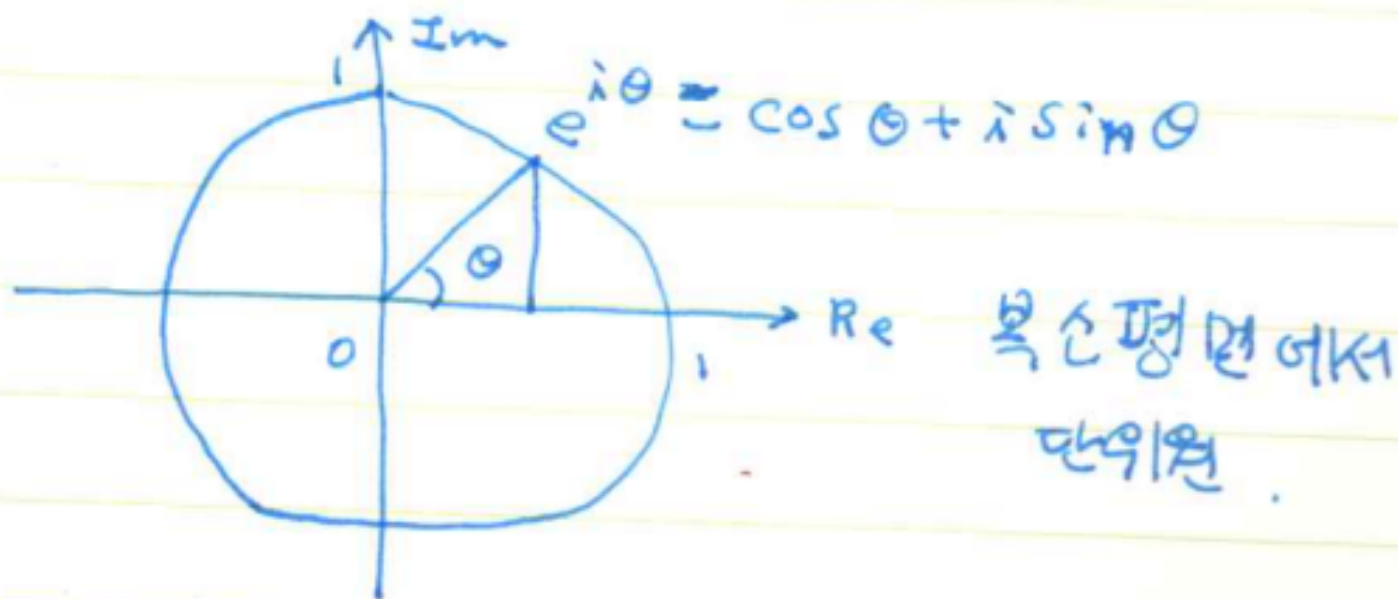 Im
1
e^{iθ} = cos θ + i sin θ
θ
0
1
Re
복소평면에서
단위원.